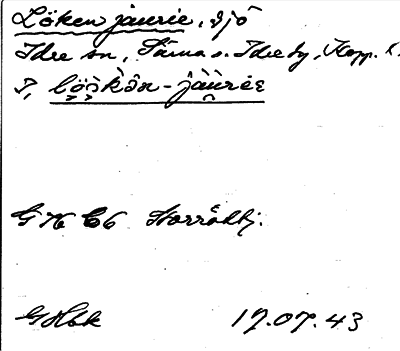 Löken jaurie, sjö
Idre sn, Särna o. Idre tg, Kopp. l.
P, löskên-jàurie
GK C6 Storrödtj.
17.07.43